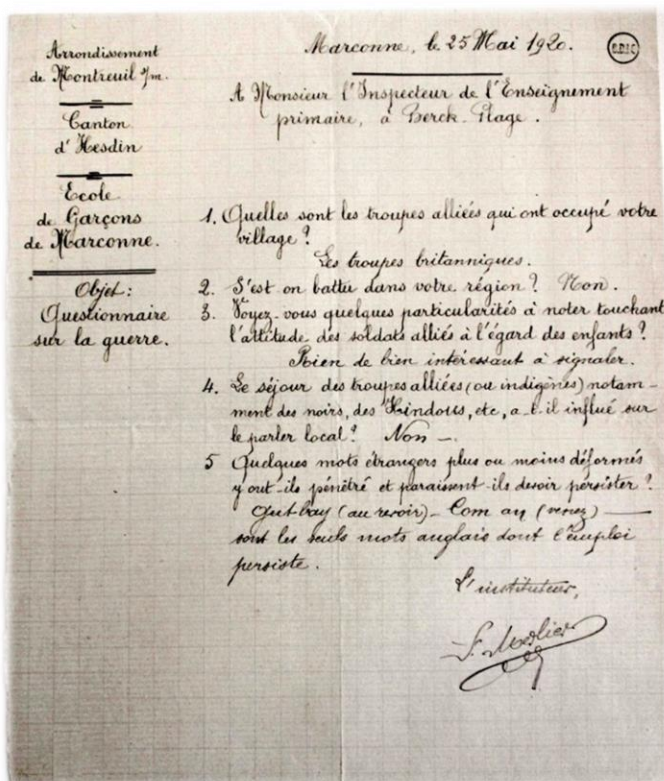 Arrondissement
de Montreuil s/m.
Canton
d'Hesdin
École
de Garçons
de Marconne.
Objet:
Questionnaire
sur la guerre.
Marconne, le 25 Mai 1920.
B.D.I.C
A Monsieur l'Inspecteur de l'Enseignement
primaire, à Berck-Plage.
1. Quelles sont les troupes alliées qui ont occupé votre
village?
Les troupes britanniques.
2. S'est on battu dans votre région? Non.
3. Voyez-vous quelques particularités à noter touchant
l'attitude des soldats alliés à l'égard des enfants?
Rien de bien intéressant à signaler.
4. Le séjour des troupes alliées (ou indigènes) notam-
ment des noirs, des Hindous, etc, a-t-il influé sur
le parler local? Non -.
5 Quelques mots étrangers plus ou moins déformés
y ont-ils pénétré et paraissent-ils devoir persister?
Gut-bay (au revoir) - Com ay (venez) —
sont les seuls mots anglais dont l'emploi
persiste.
L'instituteur,